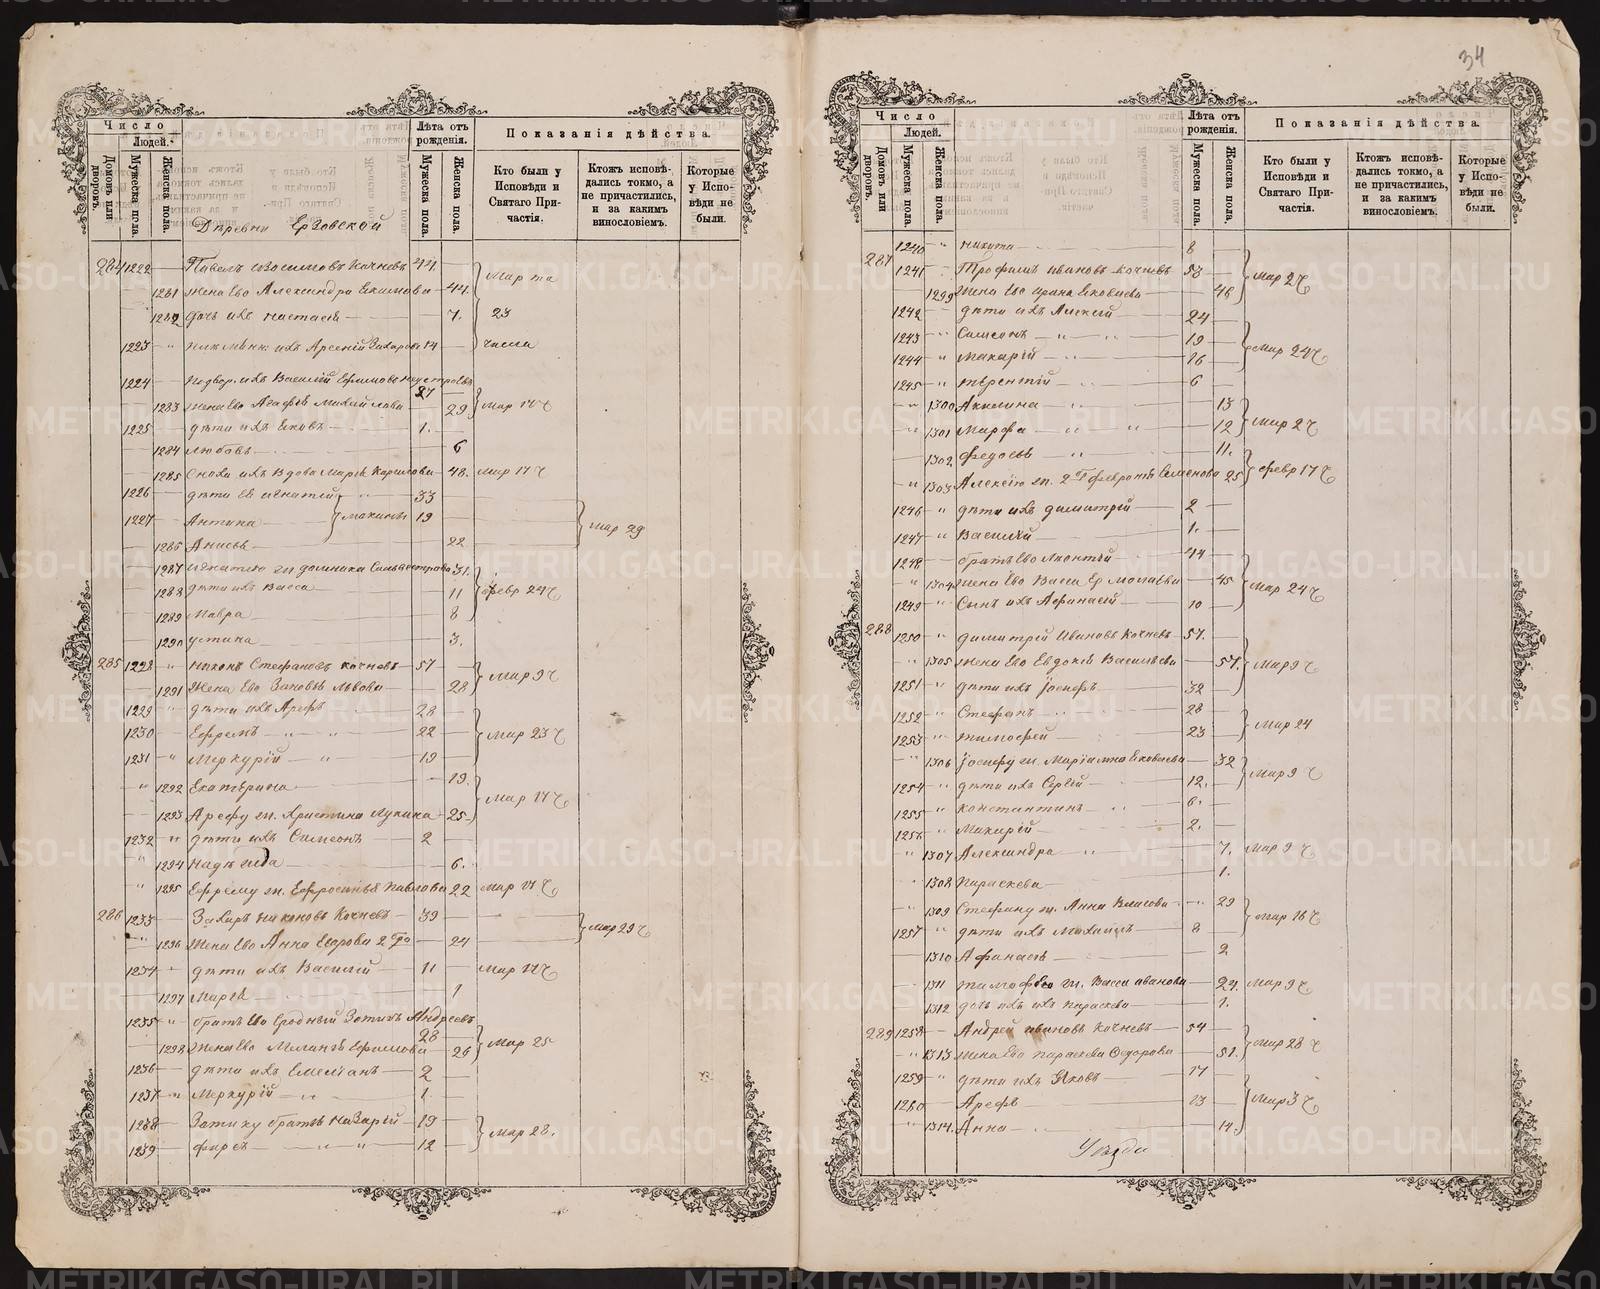 34
Число
Людей.
Домовъ или дворовъ.
Мужеска пола.
Женска пола.
Лѣта отъ рожденія.
Мужеска пола.
Женска пола.
Показанія дѣйства.
Кто были у Исповѣди и Святаго Причастія.
Ктожъ исповѣдались токмо, а не причастились, и за какимъ винословіемъ.
Которые у Исповѣди не были.
Деревни Ерзовской
284 1222 Павелъ Кочневъ 44
1281 Жена Ево Александра Екимова 44. Мар та
1282 Дочь ихъ Настасія 7. 23
1223 " ихъ Арсеній Захаровъ 14 числа
1224 Подвор. ихъ Василій Ефимовъ
27
1283 Жена Ево Агафья Михайлова 29 Мар 17 ч
1225 дѣти ихъ Яковъ 1.
1284 Любовь 6
1285 Сноха ихъ Вдова Марья Карпова 48. Мар 17 ч
1226 дѣти ея Игнатій 33
1227 Антипа 19 Мар 29
1286 Анисья 22
1287 Игнатію ж. Домника Сильвестрова 31.
1288 дѣти ихъ Васса 11 Февр 24 ч
1289 Мавра 8
1290 Устина 3.
285 1228 " Никонъ Стефановъ Кочневъ 57
1291 Жена Ево Зиновья Львова 28 Мар 9 ч
1229 " дѣти ихъ Арефъ 28
1230 Ефремъ " " 22 Мар 23 ч
1231 " Меркурій " 19
" 1292 Екатерина 19.
Мар 17 ч
1293 Арефу ж. Христина Лукина 25
1232 " дѣти ихъ Симеонъ 2
" 1294 Надежда 6.
" 1295 Ефрему ж. Ефросинья Павлова 22 Мар 17 ч
286 1233 Захаръ Никоновъ Кочневъ 39
" 1296 Жена Ево Анна Егорова 2 Бр 24 Мар 29 ч
1234 дѣти ихъ Василій 11 Мар 17 ч
1297 Марья 1
1235 " братъ Ево Сродный Зотикъ Андреевъ
28
1298 Жена Ево Меланья Ефимова 26 Мар 25
1236 дѣти ихъ Емеліанъ 2
1237 " Меркурій " 1
1238 Зотику братъ Назарій 19
1239 Фирсъ " " 12 Мар 28.
Число
Людей.
Домовъ или дворовъ.
Мужеска пола.
Женска пола.
Лѣта отъ рожденія.
Мужеска пола.
Женска пола.
Показанія дѣйства.
Кто были у Исповѣди и Святаго Причастія.
Ктожъ исповѣдались токмо, а не причастились, и за какимъ винословіемъ.
Которые у Исповѣди не были.
1240 " Никита 8
287 1241 Трофимъ Ивановъ Кочневъ 53 Мар 2 ч
1299 Жена Ево Ирина Яковлева 48
1242 дѣти ихъ Алексій 24
1243 " Самсонъ " " 19
1244 " Макарій " 16 Мар 24 ч
1245 " Терентій " 6
" 1300 Акилина " 13
" 1301 Марфа " " 12 Мар 2 ч
1302 Федосья 11.
" 1303 Алексію ж. 2 Бр Февронія Семенова 25 Февр 17 ч
1246 " дѣти ихъ Димитрій 2
1247 " Василій 1.
1248 братъ Ево Леонтій 44
" 1304 Жена Ево Васса Ермолаева 45 Мар 24 ч
1249 " Сынъ ихъ Афанасій 10
288 1250 " Димитрій Ивановъ Кочневъ 57.
" 1305 Жена Ево Евдокія Васильева 57. Мар 9 ч
1251 " дѣти ихъ Іосифъ 32
1252 " Стефанъ " 28
1253 " Тимофей 23 Мар 24
" 1306 Іосифу ж. Маріамна Яковлева 32
1254 " дѣти ихъ Сергій 12. Мар 9 ч
1255 " Константинъ 6.
1256 " Макарій 2.
" 1307 Александра " 7. Мар 9 ч
" 1308 Параскева 1.
" 1309 Стефану ж. Анна Власова 29
1257 " дѣти ихъ Михаилъ 8 Мар 16 ч
1310 Афанасья 2
1311 Тимофею ж. Васса Иванова 24. Мар 9 ч
1312 дочь ихъ Параскева 1.
289 1258 Андрей Ивановъ Кочневъ 54
" 1313 Жена Ево Параскева Федорова 51. Мар 28 ч
1259 " дѣти ихъ Яковъ 17
1260 Арефъ 13 Мар 3 ч
" 1314. Анна 14.